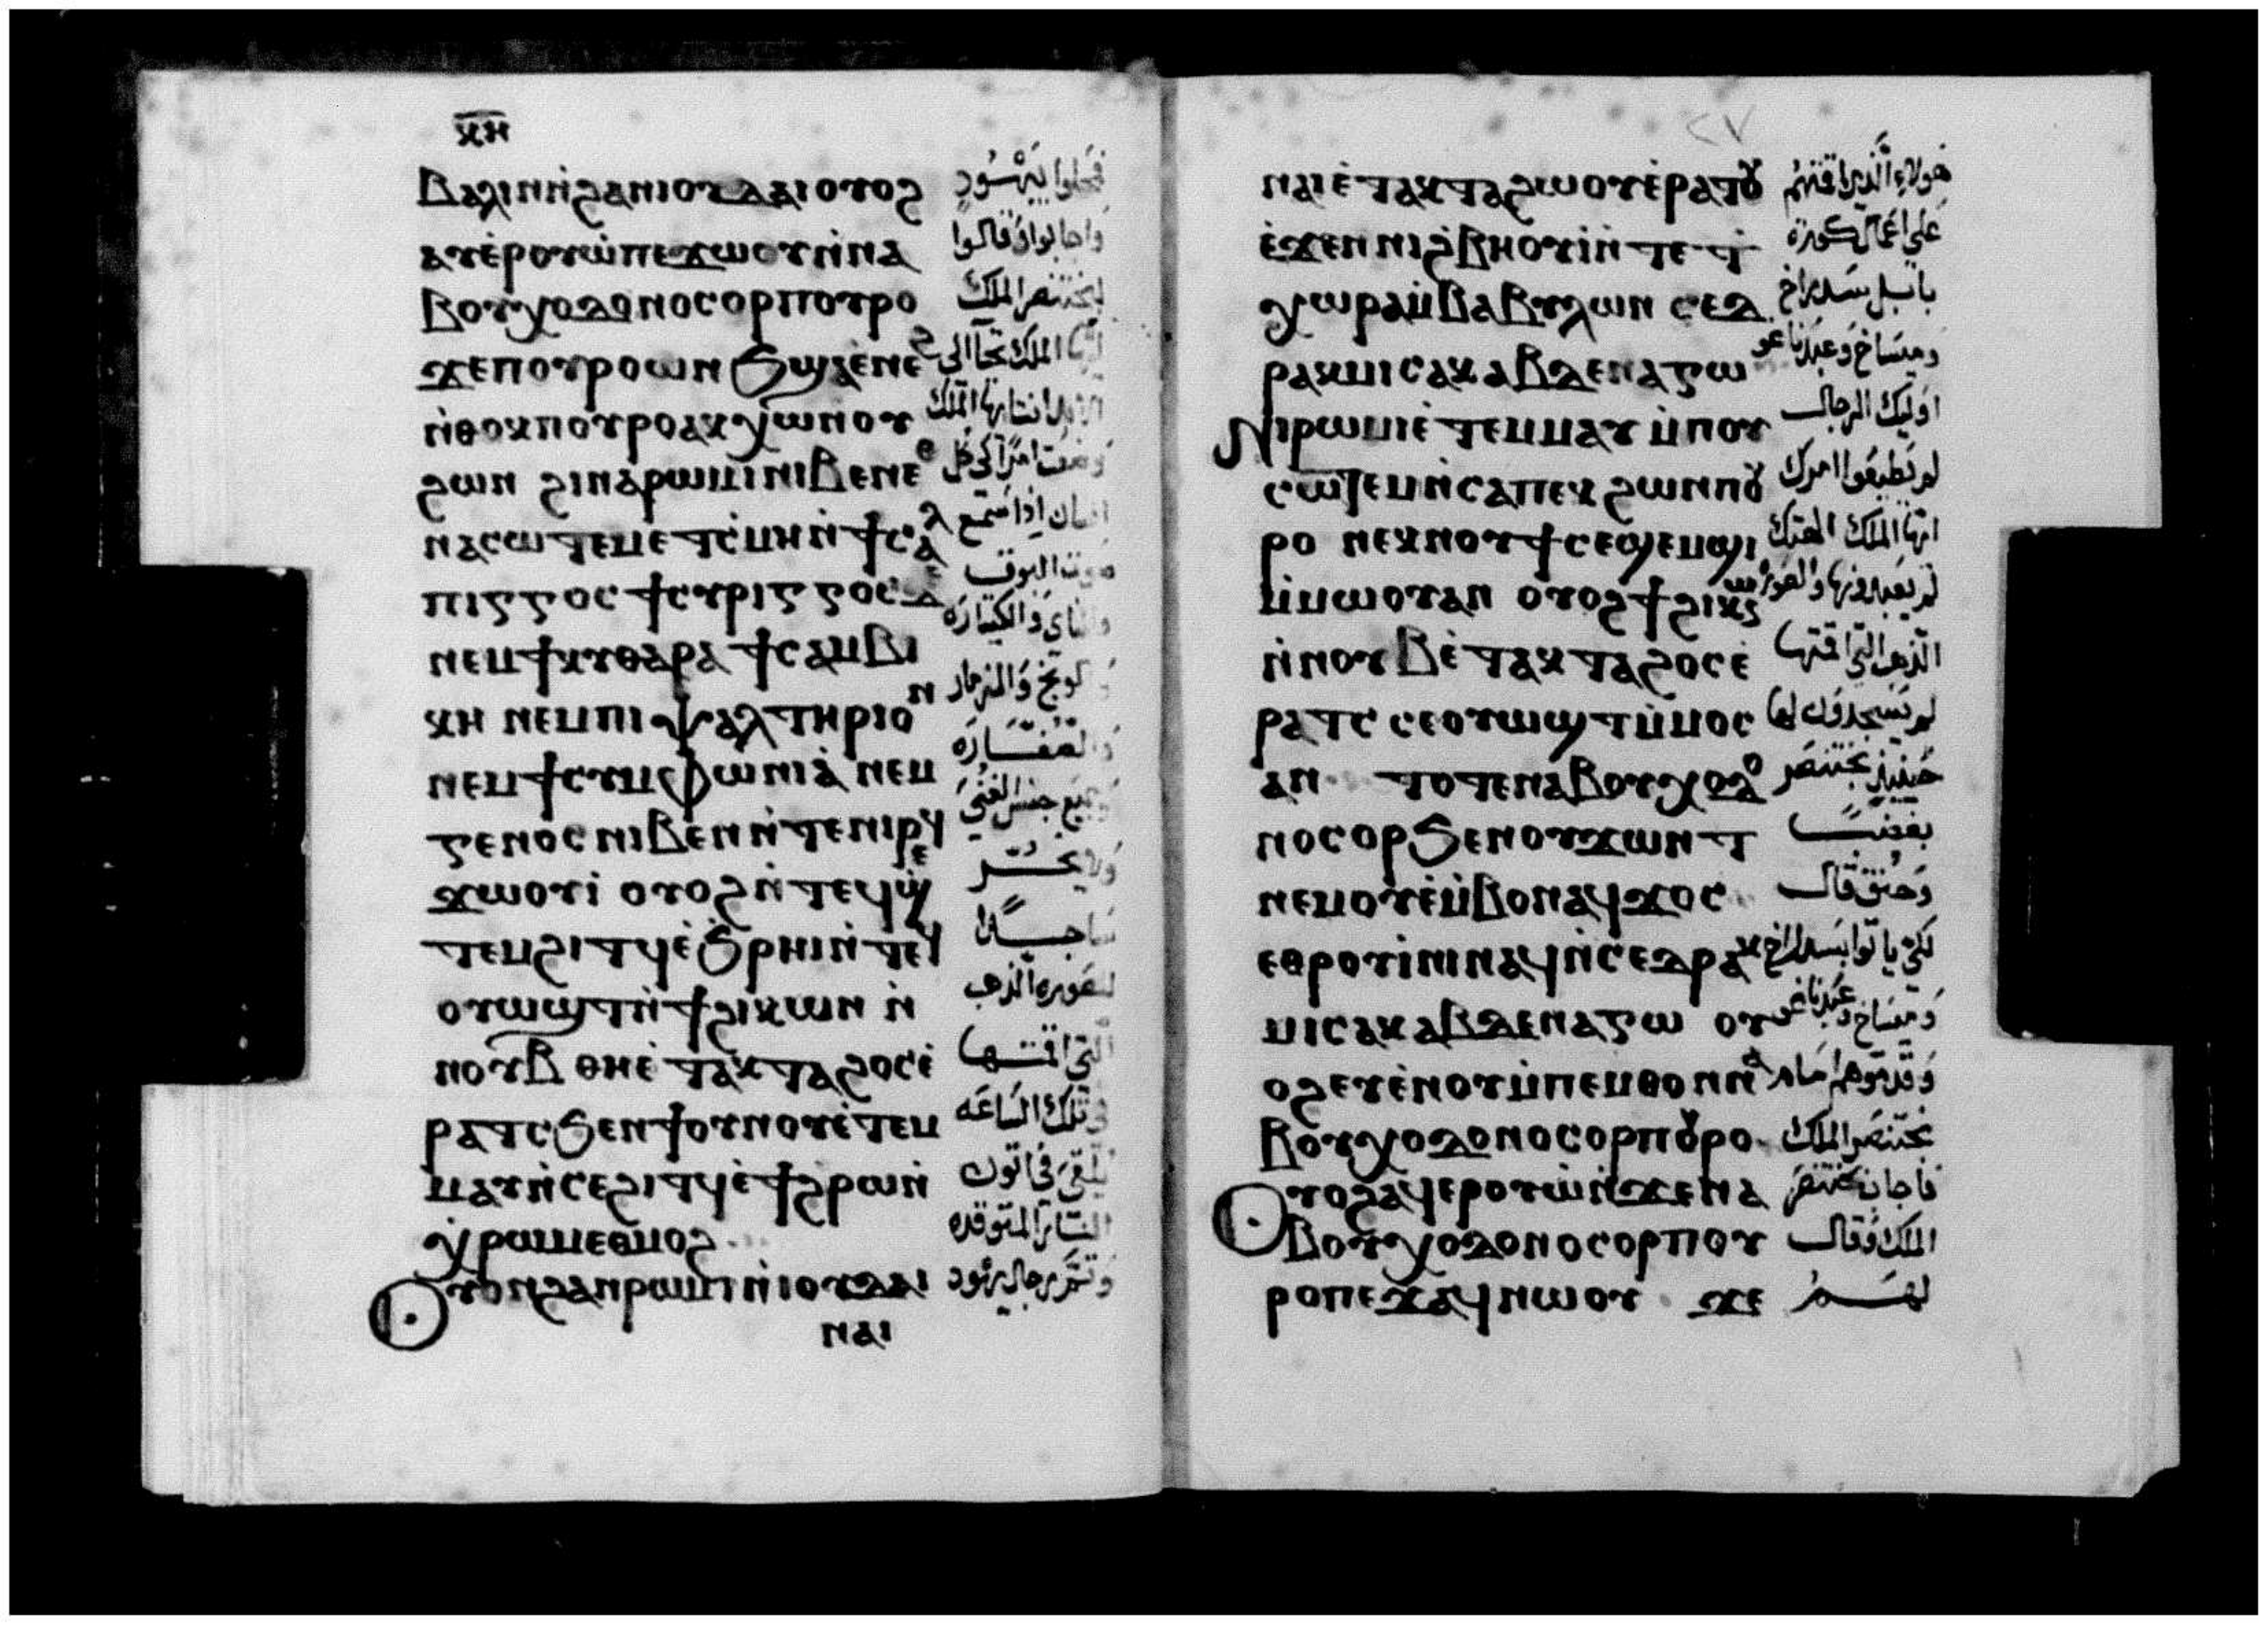 ⲕⲏ
Ⲃⲁⲗⲓⲛⲛ̀ϩⲁⲛⲓⲟⲩⲇⲁⲓⲟⲩⲟϩ
ⲁⲩⲉ̀ⲣⲟⲩⲱ̀ⲡⲉϫⲱⲟⲩⲛ̀ⲛⲁ
ⲃⲟⲩⲭⲟⲇⲟⲛⲟⲥⲟⲣⲡⲟⲩⲣⲟ
ϫⲉⲡⲟⲩⲣⲟⲱⲛϧϣⲁⲉ̀ⲛⲉϩ
ⲛ̀ⲑⲟⲕⲡⲟⲩⲣⲟⲁⲕⲭⲱⲛ̀ⲟⲩ
ϩⲱⲛ ϩⲓⲛⲁⲣⲱⲙⲓⲛⲓⲃⲉⲛⲉⲑ
ⲛⲁⲥⲱⲧⲉⲙⲉⲧⲥ̀ⲙⲏⲛ̀ϯⲥⲁⲗ
ⲡⲓⲅⲅⲟⲥ ϯⲥⲩⲣⲓⲅⲅⲟⲥ
ⲛⲉⲙϯⲕⲩⲑⲁⲣⲁ ϯⲥⲁⲙⲃⲓ
ⲕⲏ ⲛⲉⲙⲡⲓⲯⲁⲗⲧⲏⲣⲓⲟⲛ
ⲛⲉⲙϯⲥⲩⲙⲫⲱⲛⲓⲁ̀ ⲛⲉⲙ
ⲅⲉⲛⲟⲥ ⲛⲓⲃⲉⲛⲛ̀ⲧⲉⲛⲓⲣⲉϥ
ϫⲱⲟⲩⲓ̀ ⲟⲩⲟϩⲛ̀ⲧⲉϥϣ̀
ⲧⲉⲙϩⲓⲧϥⲉ̀ϧⲣⲏⲓⲛ̀ⲧⲉϥ
ⲟⲩⲱϣⲧⲛ̀ϯϩⲓⲕⲱⲛ ⲛ̀
ⲛⲟⲩⲃ ⲑⲏⲉ̀ⲧⲁⲕⲧⲁϩⲟⲥⲉ̀
ⲣⲁⲧⲥ ϧⲉⲛϯⲟⲩⲛⲟⲩⲉ̀ⲧⲉⲙ
ⲙⲁⲩⲛ̀ⲥⲉϩⲓⲧϥⲉ̀ϯϩⲣⲱⲛ̀
ⲭ̀ⲣⲱⲙⲉⲑⲙⲟϩ
Ⲟⲩⲟⲛϩⲁⲛⲣⲱⲙⲓⲛ̀ⲓⲟⲩⲇⲁⲓ
ⲛⲁⲓ
واجابوا وقالوا
لبختنصر الملك
صوت البوق
والناي والكيتاره
وجميع جنس
ساجدًا
للصوره الذهب
التي اقمتها
في تلك الساعه
يلقى في اتون
النار المتوقده
٢٧
ⲛⲁⲓⲉ̀ⲧⲁⲕⲧⲁϩⲱⲟⲩⲉ̀ⲣⲁⲧⲟⲩ
ⲉ̀ϫⲉⲛ ⲛⲓϩ̀ⲃⲏⲟⲩⲓ̀ⲛ̀ⲧⲉ ϯ
ⲭⲱⲣⲁⲙ̀ⲃⲁⲃⲩⲗⲱⲛ ⲥⲉⲇ
ⲣⲁⲕⲙⲓⲥⲁⲕⲁⲃⲇⲉⲛⲁⲅⲱ
Ⲛⲓⲣⲱⲙⲓⲉ̀ⲧⲉⲙⲙⲁⲩ ⲙ̀ⲡⲟⲩ
ⲥⲱⲧⲉⲙⲛ̀ⲥⲁⲡⲉⲕϩⲱⲛⲡⲟⲩ
ⲣⲟ ⲛⲉⲕⲛⲟⲩϯⲥⲉϣⲉⲙϣⲓ
ⲙ̀ⲙⲱⲟⲩⲁⲛ ⲟⲩⲟϩϯϩⲓⲕⲱⲛ
ⲛ̀ⲛⲟⲩⲃⲉ̀ⲧⲁⲕⲧⲁϩⲟⲥⲉ̀
ⲣⲁⲧⲥ ⲥⲉⲟⲩⲱϣⲧⲙ̀ⲙⲟⲥ
ⲁⲛ ⲧⲟⲧⲉⲛⲁⲃⲟⲩⲭⲟⲇⲟ
ⲛⲟⲥⲟⲣϧⲉⲛⲟⲩϫⲱⲛⲧ
ⲛⲉⲙⲟⲩⲉ̀ⲙ̀ⲃⲟⲛⲁϥϫⲟⲥ
ⲉⲑⲣⲟⲩⲓ̀ⲛⲓⲛⲁϥⲛ̀ⲥⲉⲇⲣⲁⲕ
ⲙⲓⲥⲁⲕⲁⲃⲇⲉⲛⲁⲅⲱ ⲟⲩ
ⲟϩⲉⲩⲉ̀ⲛⲟⲩⲙ̀ⲡⲉⲙⲑⲟⲛⲛⲁ
ⲃⲟⲩⲭⲟⲇⲟⲛⲟⲥⲟⲣⲡⲟⲩⲣⲟ
Ⲟⲩⲟϩⲁϥⲉⲣⲟⲩⲱ̀ⲛ̀ϫⲉⲛⲁ
ⲃⲟⲩⲭⲟⲇⲟⲛⲟⲥⲟⲣⲡⲟⲩ
ⲣⲟⲡⲉϫⲁϥⲛⲱⲟⲩ ϫⲉ
هولاء الذين اقمتهم
على اعمال كورة
بابيل سدراخ
وميساخ وعبدناغو
اوليك الرجال
لم يطيعوا امرك
ايها الملك الهتك
لم يعبدونها والصوره
الذهب التي اقمتها
لم يسجدون لها
حينيذ بختنصر
بغضب
وحنق قال
لكي ياتوا بسدراخ
وميساخ وعبدناغو
وقدموهم امام
بختنصر الملك
فاجاب بختنصر
الملك وقال
لهم